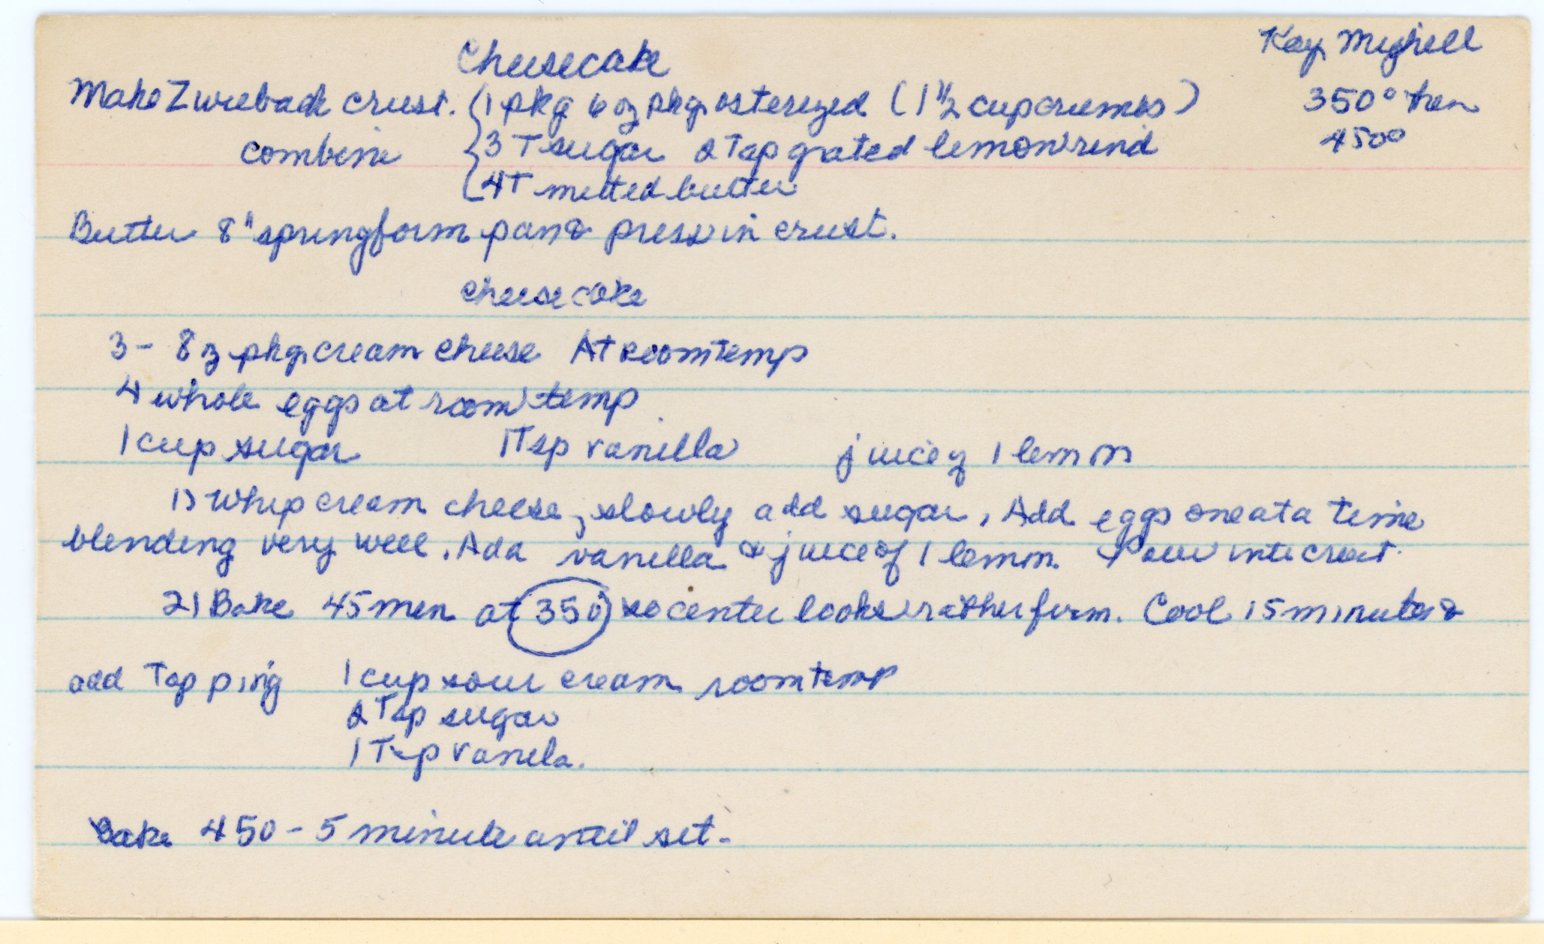 Cheesecake
Kay Myhell
Make Zwieback crust. { 1 pkg 6 oz pkg. osterized (1 1/2 cup crumbs)
350° then
combine { 3 T sugar 2 Tsp grated lemon rind
450°
{ 4T melted butter
Butter 8" springform pan & press in crust.
Cheesecake
3 - 8 oz pkg. cream cheese At room temp
4 whole eggs at room temp
1 cup sugar 1 Tsp vanilla juice of 1 lemon
1) Whip cream cheese, slowly add sugar, Add eggs one at a time
blending very well. Add vanilla & juice of 1 lemon. Pour into crust.
2) Bake 45 min at 350 so center looks rather firm. Cool 15 minutes &
add Topping 1 cup sour cream room temp
2 Tsp sugar
1 Tsp vanila.
Bake 450 - 5 minute until set.